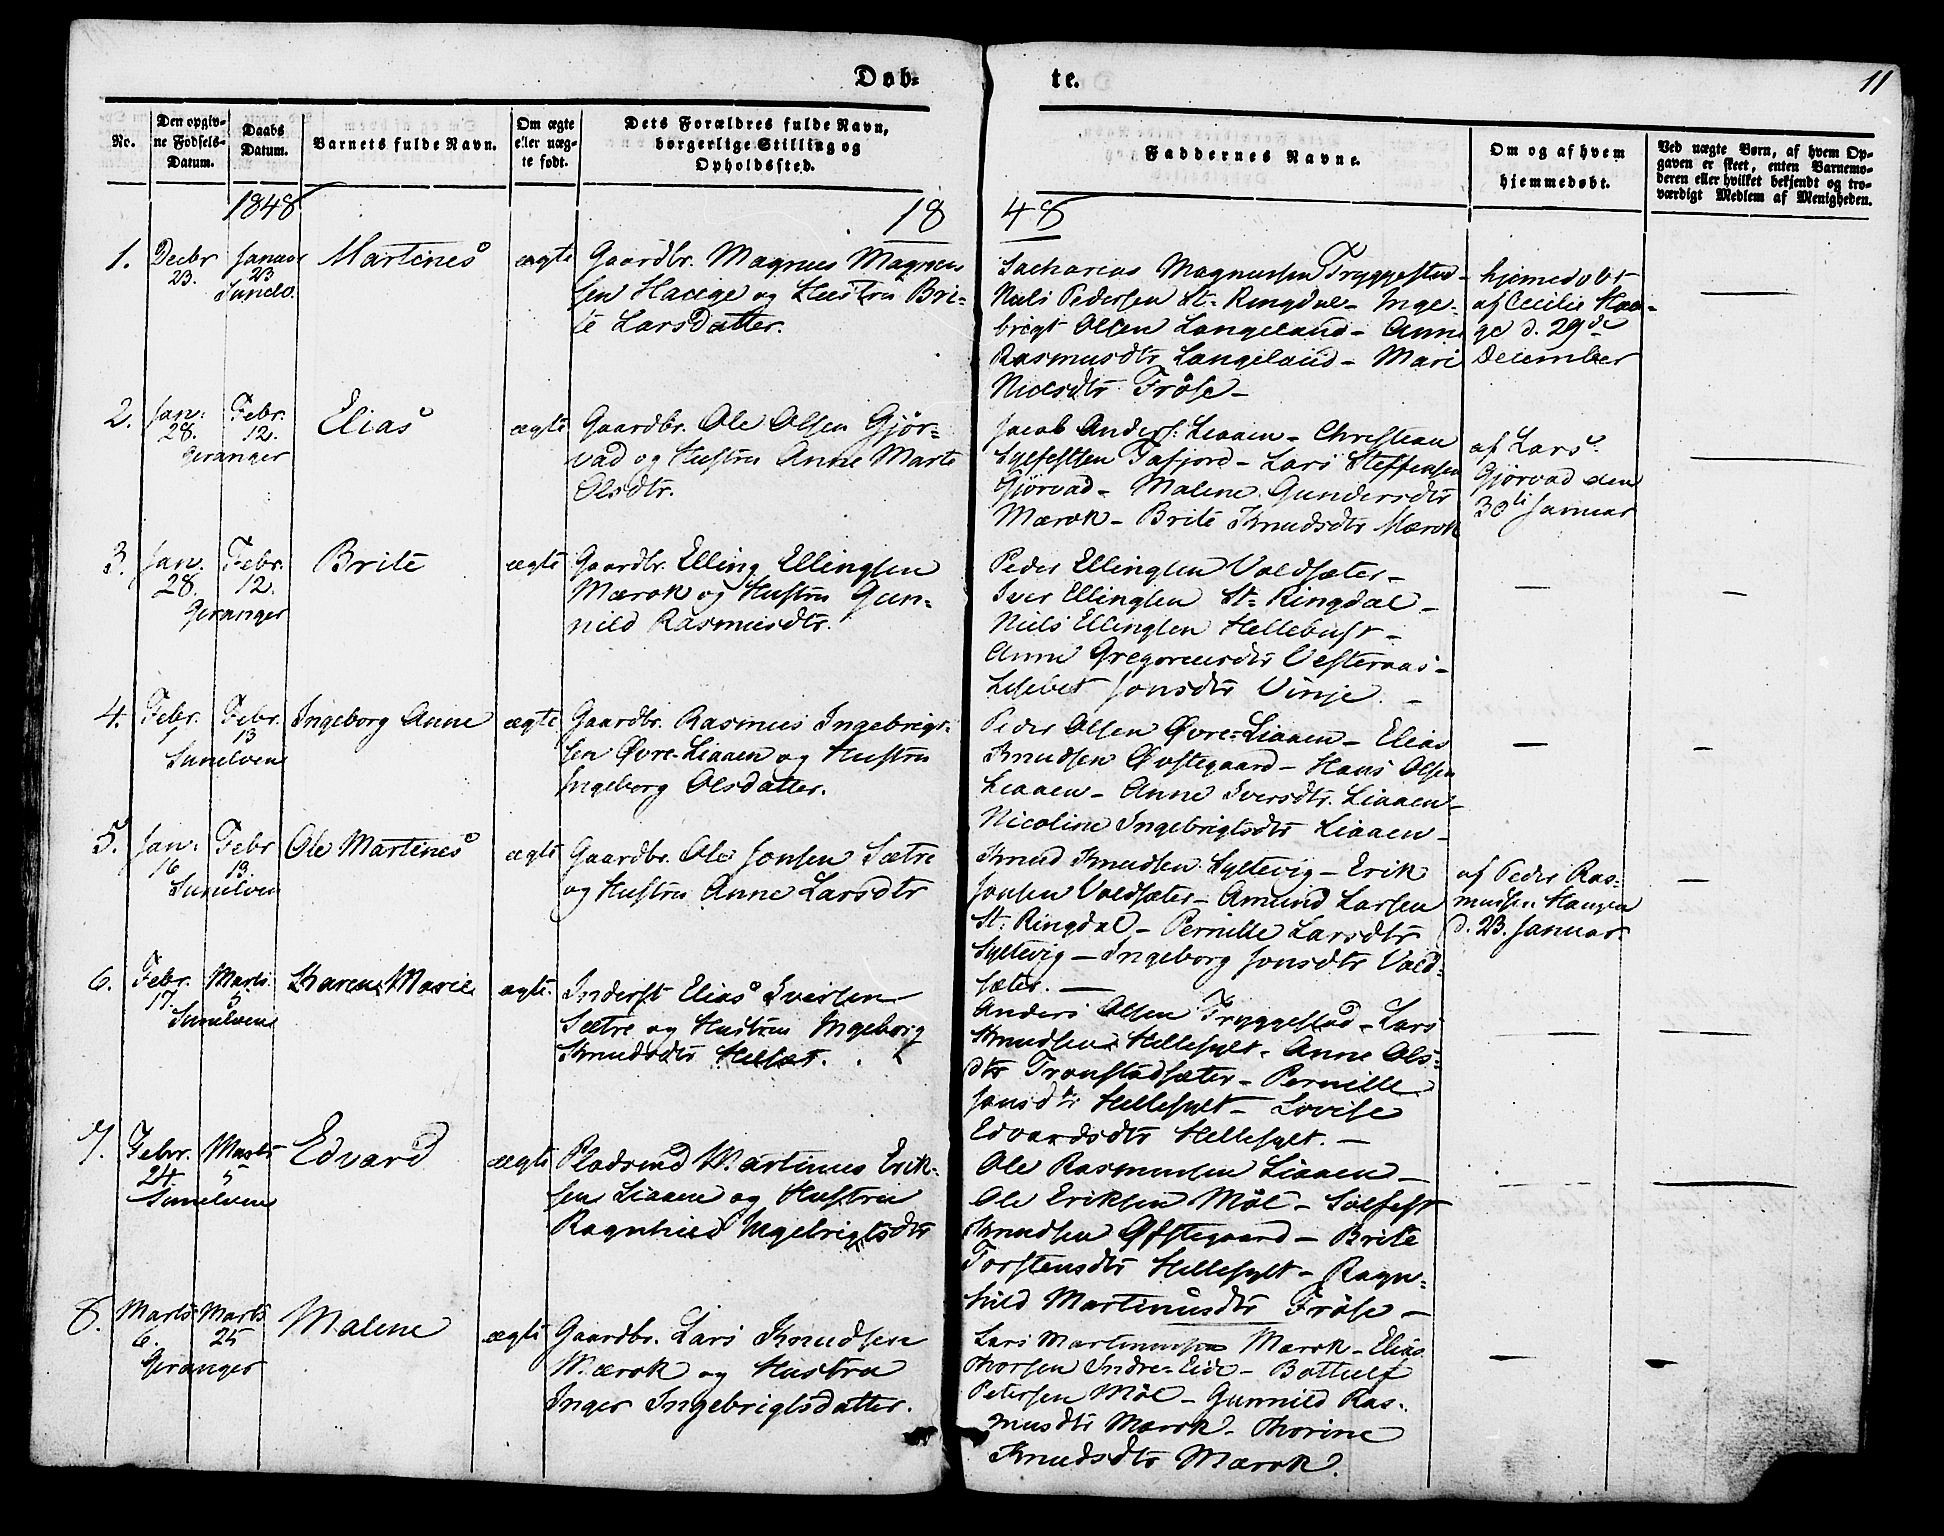 Døb-
te.
11
No.
Den opgiv-
ne Fødsels-
Datum.
Daabs
Datum.
Barnets fulde Navn.
Om ægte
eller uæg-
te født.
Dets Forældres fulde Navn,
borgerlige Stilling og
Opholdssted.
Faddernes Navne.
Om og af hvem
hjemmedøbt.
Ved uægte Børn, af hvem Op-
gaven er skeet, enten Barnemo-
deren eller hvilket bekjendt og tro-
værdigt Medlem af Menigheden.
1848
18
48
1.
Decbr
23.
Januar
23
Sunelv.
Martines
ægte
Gaardbr. Magnus Magnus
sen Hauge og Hustru Bri-
te Larsdatter.
Sacharias Magnussen Tryggestad -
Niels Pedersen St: Ringdal - Inge-
brigt Olsen Langeland - Anne
Rasmusdtr Langeland - Mari
Nielsdtr Frøse -
hjemedøbt
af Cecilie Hau-
ge d. 29de
December
2.
Jan:
28.
Febr.
12.
Geranger
Elias
ægte
Gaardbr. Ole Olsen Gjør-
vad og Hustru Anne Marte
Olsdtr.
Jacob Anders: Liaaen - Christian
Sylfestsen Tafjord - Lars Steffensen
Gjørvad - Malene Gundersdtr
Mærok - Brite Knudsdtr Mærok
af Lars
Gjørvad den
30te Januar
3.
Jan.
28.
Febr.
12.
Geranger
Brite
ægte
Gaardbr. Elling Ellingsen
Mærok og Hustru Gun-
nild Rasmusdtr.
Peder Ellingsen Voldsæter -
Iver Ellingsen St: Ringdal -
Niels Ellingsen Hellebust -
Anne Gregoriusdtr Vesteraas -
Lisebet Jonsdtr Vinje. -
4.
Febr.
1
Febr.
13
Sunelven
Ingeborg Anne
ægte
Gaardbr. Rasmus Ingebrigt-
sen Øvre-Liaaen og Hustru
Ingeborg Olsdatter.
Peder Olsen Øvre-Liaaen - Elias
Knudsen Øvstegaard - Hans Olsen
Liaaen - Anne Iversdtr. Liaaen -
Nicoline Ingebrigtsdtr Liaaen -
5.
Jan:
16
Febr
13
Sunelven
Ole Martines
ægte
Gaardbr. Ole Jonsen Sætre
og Hustru Anne Larsdtr
Knud Knudsen Syltevig - Erik
Jonsen Voldsæter - Amund Larsen
St: Ringdal - Pernille Larsdtr
Syltevig - Ingeborg Jonsdtr Vold-
sæter. -
af Peder Ras-
mussen Haugen
d. 23. Januar.
6.
Febr.
17.
Marts.
5
Sunelven
Karen Marie
ægte.
Inderst Elias Iversen
Sætre og Hustru Ingeborg
Knudsdtr Helset.
Anders Olsen Tryggestad - Lars
Knudsen Hellesylt - Anne Ols-
dtr Tronstadsæter - Pernille
Jonsdtr Hellesylt - Lovise
Edvardsdtr Hellesylt. -
7.
Febr.
24.
Marts
5
Sunelven
Edvard
ægte
Pladsmd Martinus Erik-
sen Liaaen og Hustru
Ragnhild Ingebrigtsdtr
Ole Rasmussen Liaaen -
Ole Eriksen Møl - Sølfest
Knudsen Øfstegaard - Brite
Torstensdtr Hellesylt - Ragn-
hild Martinusdtr Frøse -
8.
Marts
6.
Marts
25
Geranger
Malene
ægte
Gaardbr. Lars Knudsen
Mærok og Hustru
Inger Ingebrigtsdatter.
Lars Martinussen Mærok - Elias
Thorsen Indre-Eide - Bottulf
Petersen Møl - Gunnild Ras-
musdtr Mærok - Thorine
Knudsdtr Mærok.